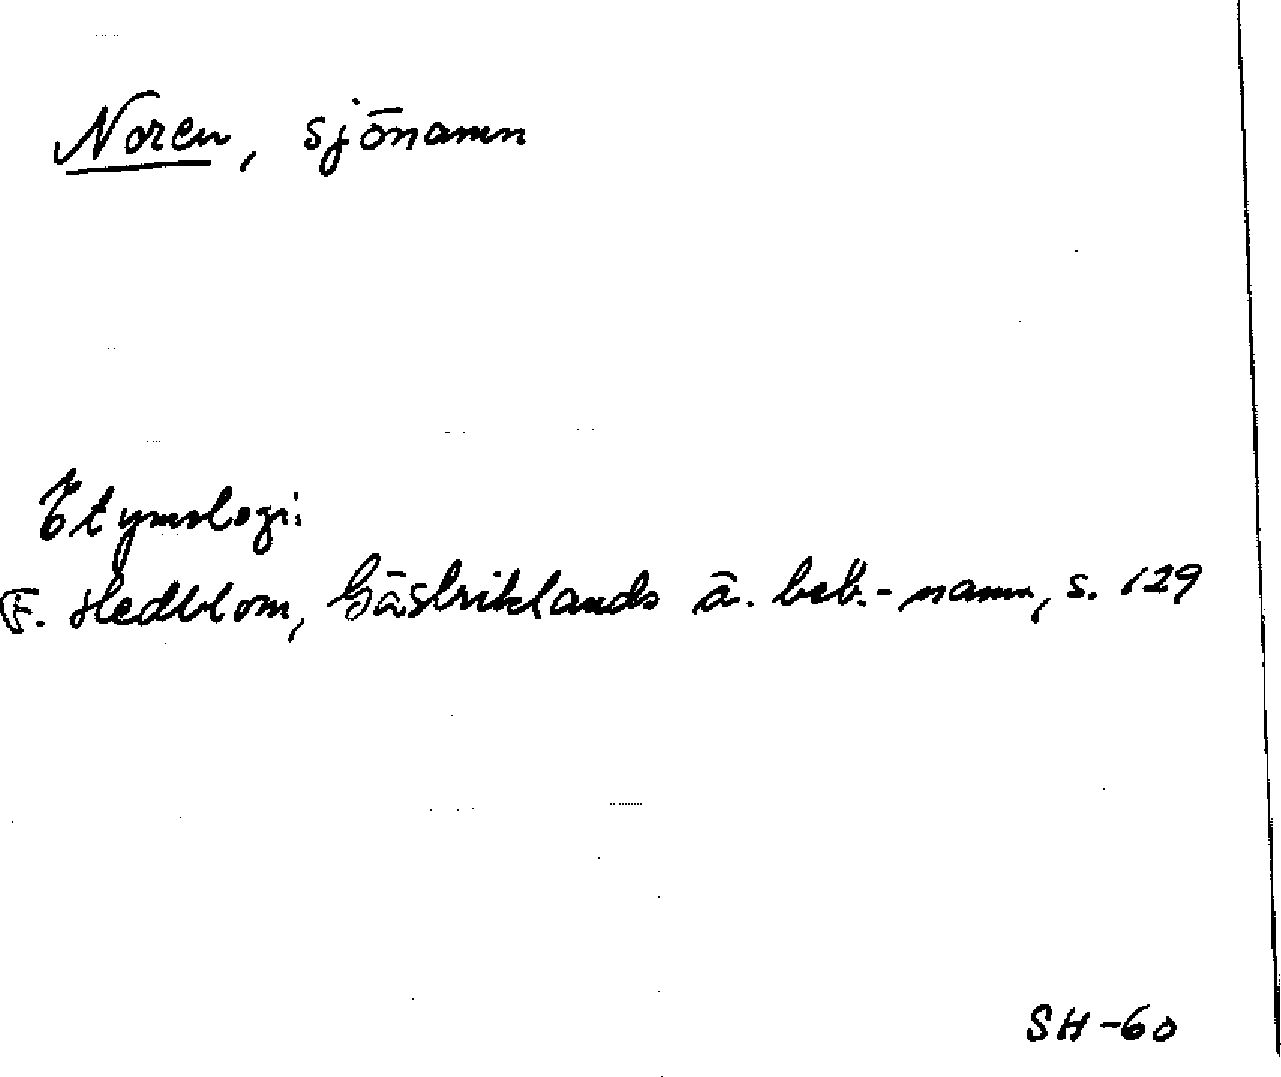 Noren, sjönamn
Etymologi:
F. Hedblom, Gästriklands ä. beb.-namn, s. 129
SH-60